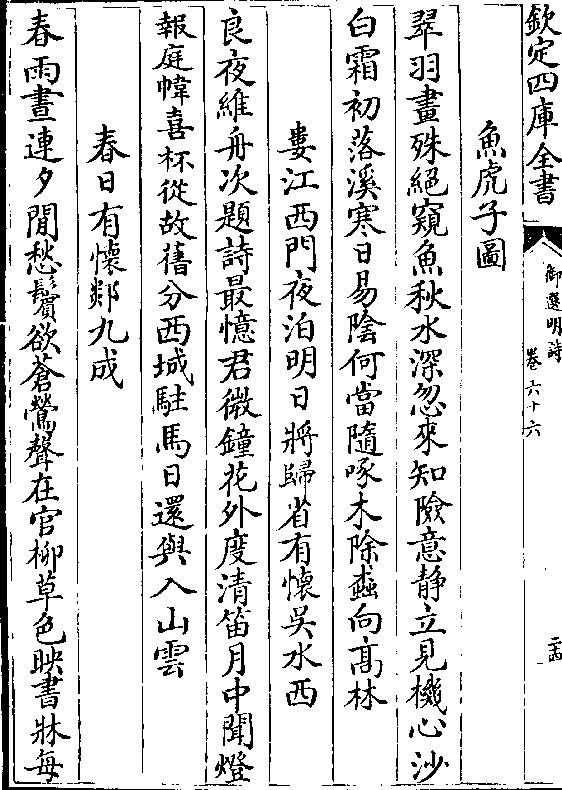 欽定四庫全書
御選明詩
卷六十六
二十四
魚虎子圖
翠羽畫殊絕窺魚秋水深忽來知險意静立見機心沙
白霜初落溪寒日易陰何當隨啄木除蠧向高林
婁江西門夜泊明日將歸省有懷吳水西
良夜維舟次題詩最憶君微鐘花外度清笛月中聞燈
報庭幃喜杯從故舊分西城駐馬日還與入山雲
春日有懷鄭九成
春雨晝連夕閒愁鬢欲蒼鶯聲在官柳草色映書牀每